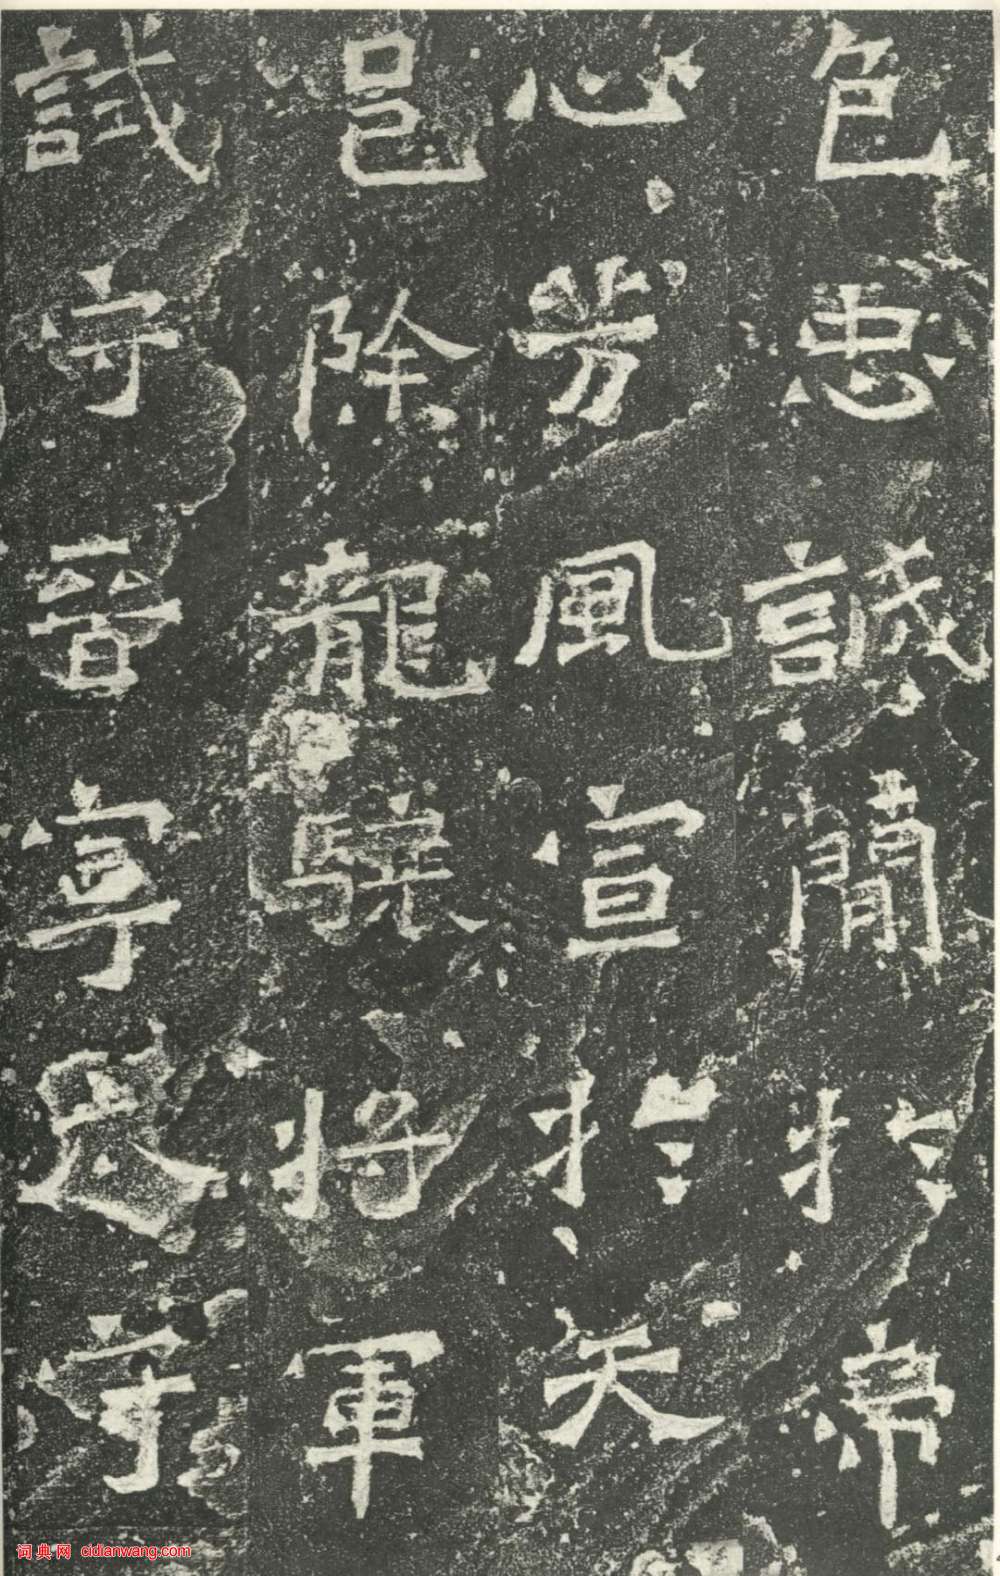 色忠誠簡於帝
心芳風宣於天
邑除龍驤將軍
試守晉寧太守
词典网 cidianwang.com